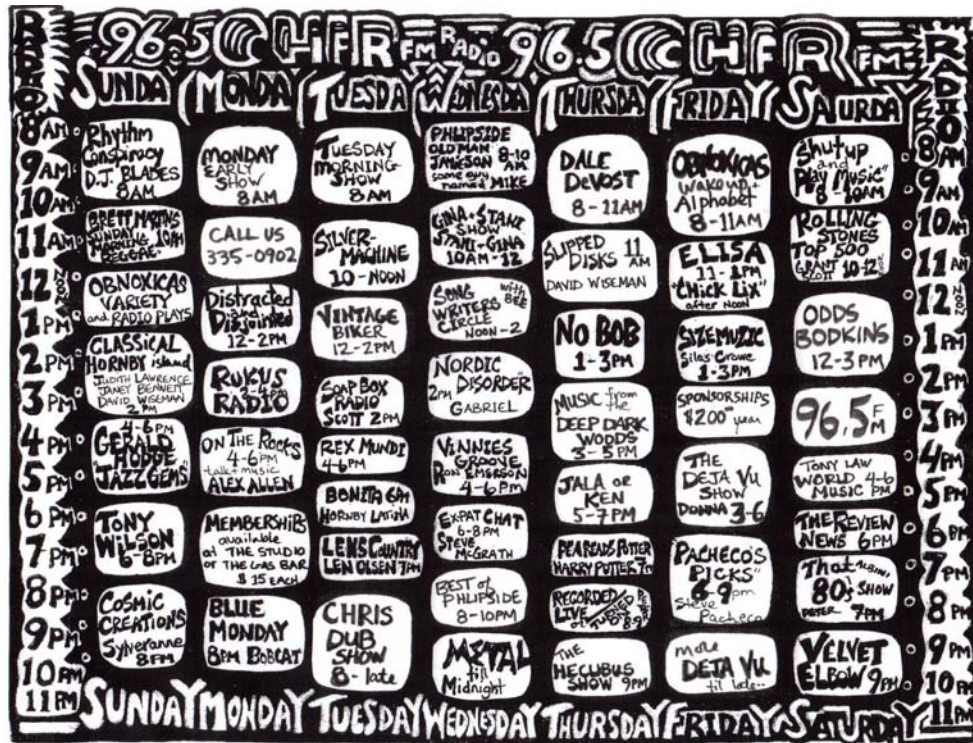 RADIO
96.5 CHFR FM RADIO 96.5 CHFR FM
RADIO
SUNDAY MONDAY TUESDAY WEDNESDAY THURSDAY FRIDAY SATURDAY
8 AM
9 AM
10 AM
11 AM
12 NOON
1 PM
2 PM
3 PM
4 PM
5 PM
6 PM
7 PM
8 PM
9 PM
10 PM
11 PM
Rhythm
Conspiracy
D.J. BLADES
8AM
BRETT MARTINS
SUNDAY
MORNING 10AM
REGGAE
OBNOXICAS
VARIETY
and RADIO PLAYS
CLASSICAL
HORNBY island
JUDITH LAWRENCE
JANEY BENNETT
DAVID WISEMAN
2 PM
4-6PM
GERALD
HODGE
"JAZZ GEMS"
TONY
WILSON
6-8PM
COSMIC
CREATIONS
Syneranne
8PM
MONDAY
EARLY
SHOW
8AM
CALL US
335-0902
Distracted
and
Disjointed
12-2PM
RUKUS
2-4PM
RADIO
ON THE ROCKS
4-6PM
talk + music
ALEX ALLEN
MEMBERSHIPS
available
at THE STUDIO
or THE GAS BAR
$15 EACH
BLUE
MONDAY
8PM BOBCAT
TUESDAY
MORNING
SHOW
8AM
SILVER-
MACHINE
10-NOON
VINTAGE
BIKER
12-2PM
SOAP BOX
RADIO
SCOTT 2PM
REX MUNDI
4-6PM
BONITA 6PM
HORNBY LATINA
LENS COUNTRY
LEN OLSEN 7PM
CHRIS
DUB
SHOW
8-late
PHLIPSIDE
OLD MAN
JAMIESON 8-10
AM
some guy
named MIKE
GINA + STANI
SHOW
STANI + GINA
10AM-12
SONG with BEE
WRITERS
CIRCLE
NOON-2
NORDIC
2PM DISORDER
GABRIEL
VINNIES
GROOVE
RON EMERSON
4-6PM
EX-PAT CHAT
6-8PM
STEVE
McGRATH
BEST of
PHLIPSIDE
8-10PM
METAL
til
Midnight
DALE
DEVOST
8-11AM
SLIPPED 11
DISKS AM
DAVID WISEMAN
NO BOB
1-3PM
MUSIC from
the
DEEP DARK
WOODS
3-5PM
JALA OR
KEN
5-7PM
PEA READS POTTER
HARRY POTTER 7PM
RECORDED
LIVE
8-9
THE
HECUBUS
SHOW 9PM
OBNOXICAS
wake up +
Alphabet
8-11AM
ELISA
11-1PM
"CHICK LIX"
after NOON
SIZEMUZIC
Silas Crowe
1-3PM
SPONSORSHIPS
$200.00 year
THE
DEJA VU
SHOW
DONNA 3-6
PACHECO'S
PICKS"
6-9pm
Steve
Pacheco
more
DEJA VU
til late..
Shut up
and
Play Music"
8-10AM
ROLLING
STONES
TOP 500
GRANT 10-12
SCOTT
ODDS
BODKINS
12-3PM
96.5 FM
TONY LAW
WORLD 4-6
MUSIC PM
THE REVIEW
NEWS 6PM
That
80's SHOW
PETER 7PM
VELVET
ELBOW 9PM
8 AM
9 AM
10 AM
11 AM
12 NOON
1 PM
2 PM
3 PM
4 PM
5 PM
6 PM
7 PM
8 PM
9 PM
10 PM
11 PM
SUNDAY MONDAY TUESDAY WEDNESDAY THURSDAY FRIDAY SATURDAY